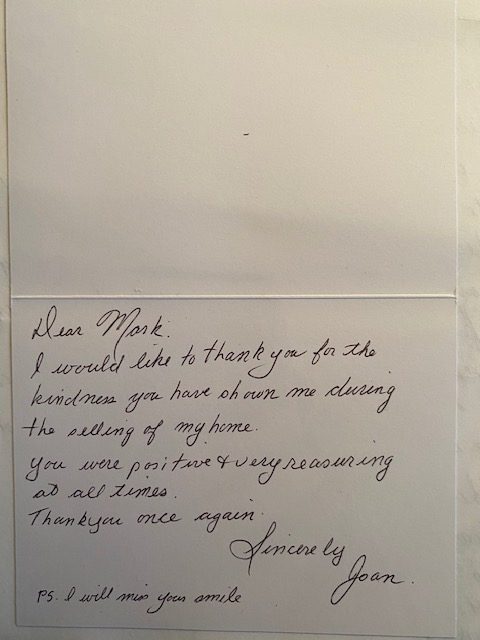 Dear Mark.
I would like to thank you for the
kindness you have shown me during
the selling of my home.
You were positive & very reasuring
at all times.
Thankyou once again.
Sincerely
Joan.
PS. I will miss your smile